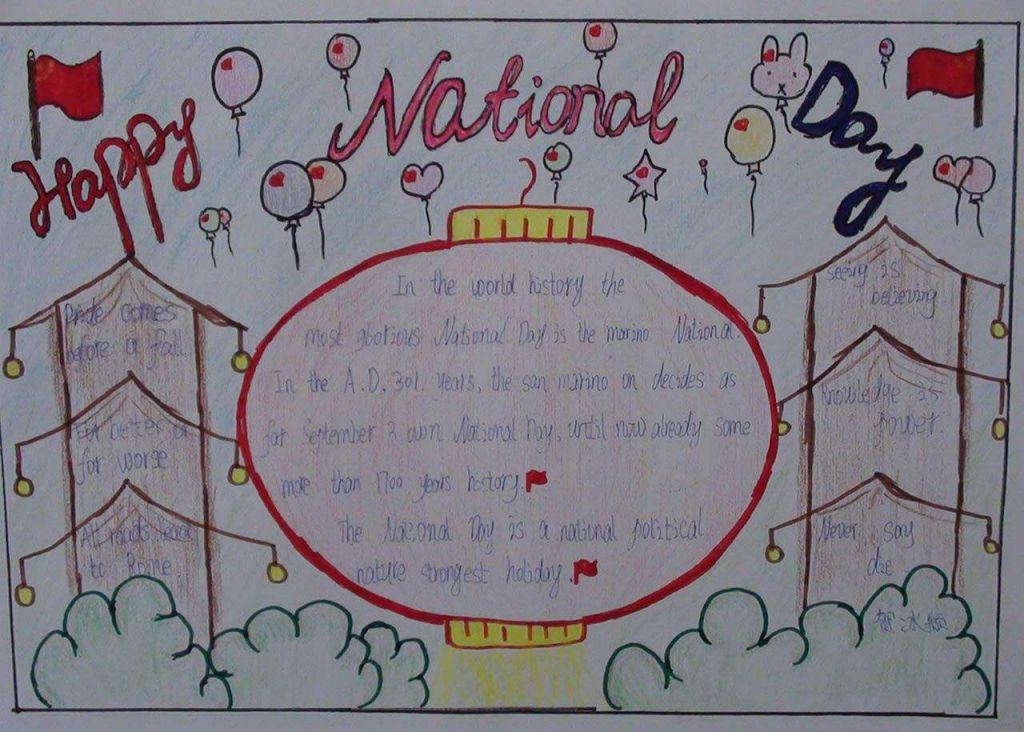 Happy National Day
Pride comes
before a fall
For better or
for worse
All roads lead
to Rome
In the world history the
most glorious National Day is the marino National.
In the A.D.301. years, the san marino on decides as
for September 3 own National Day, until now already some
more than 1700 years history
The National Day is a national political
nature strongest holiday.
seeing is
believing
Knowledge is
power.
Never say
die